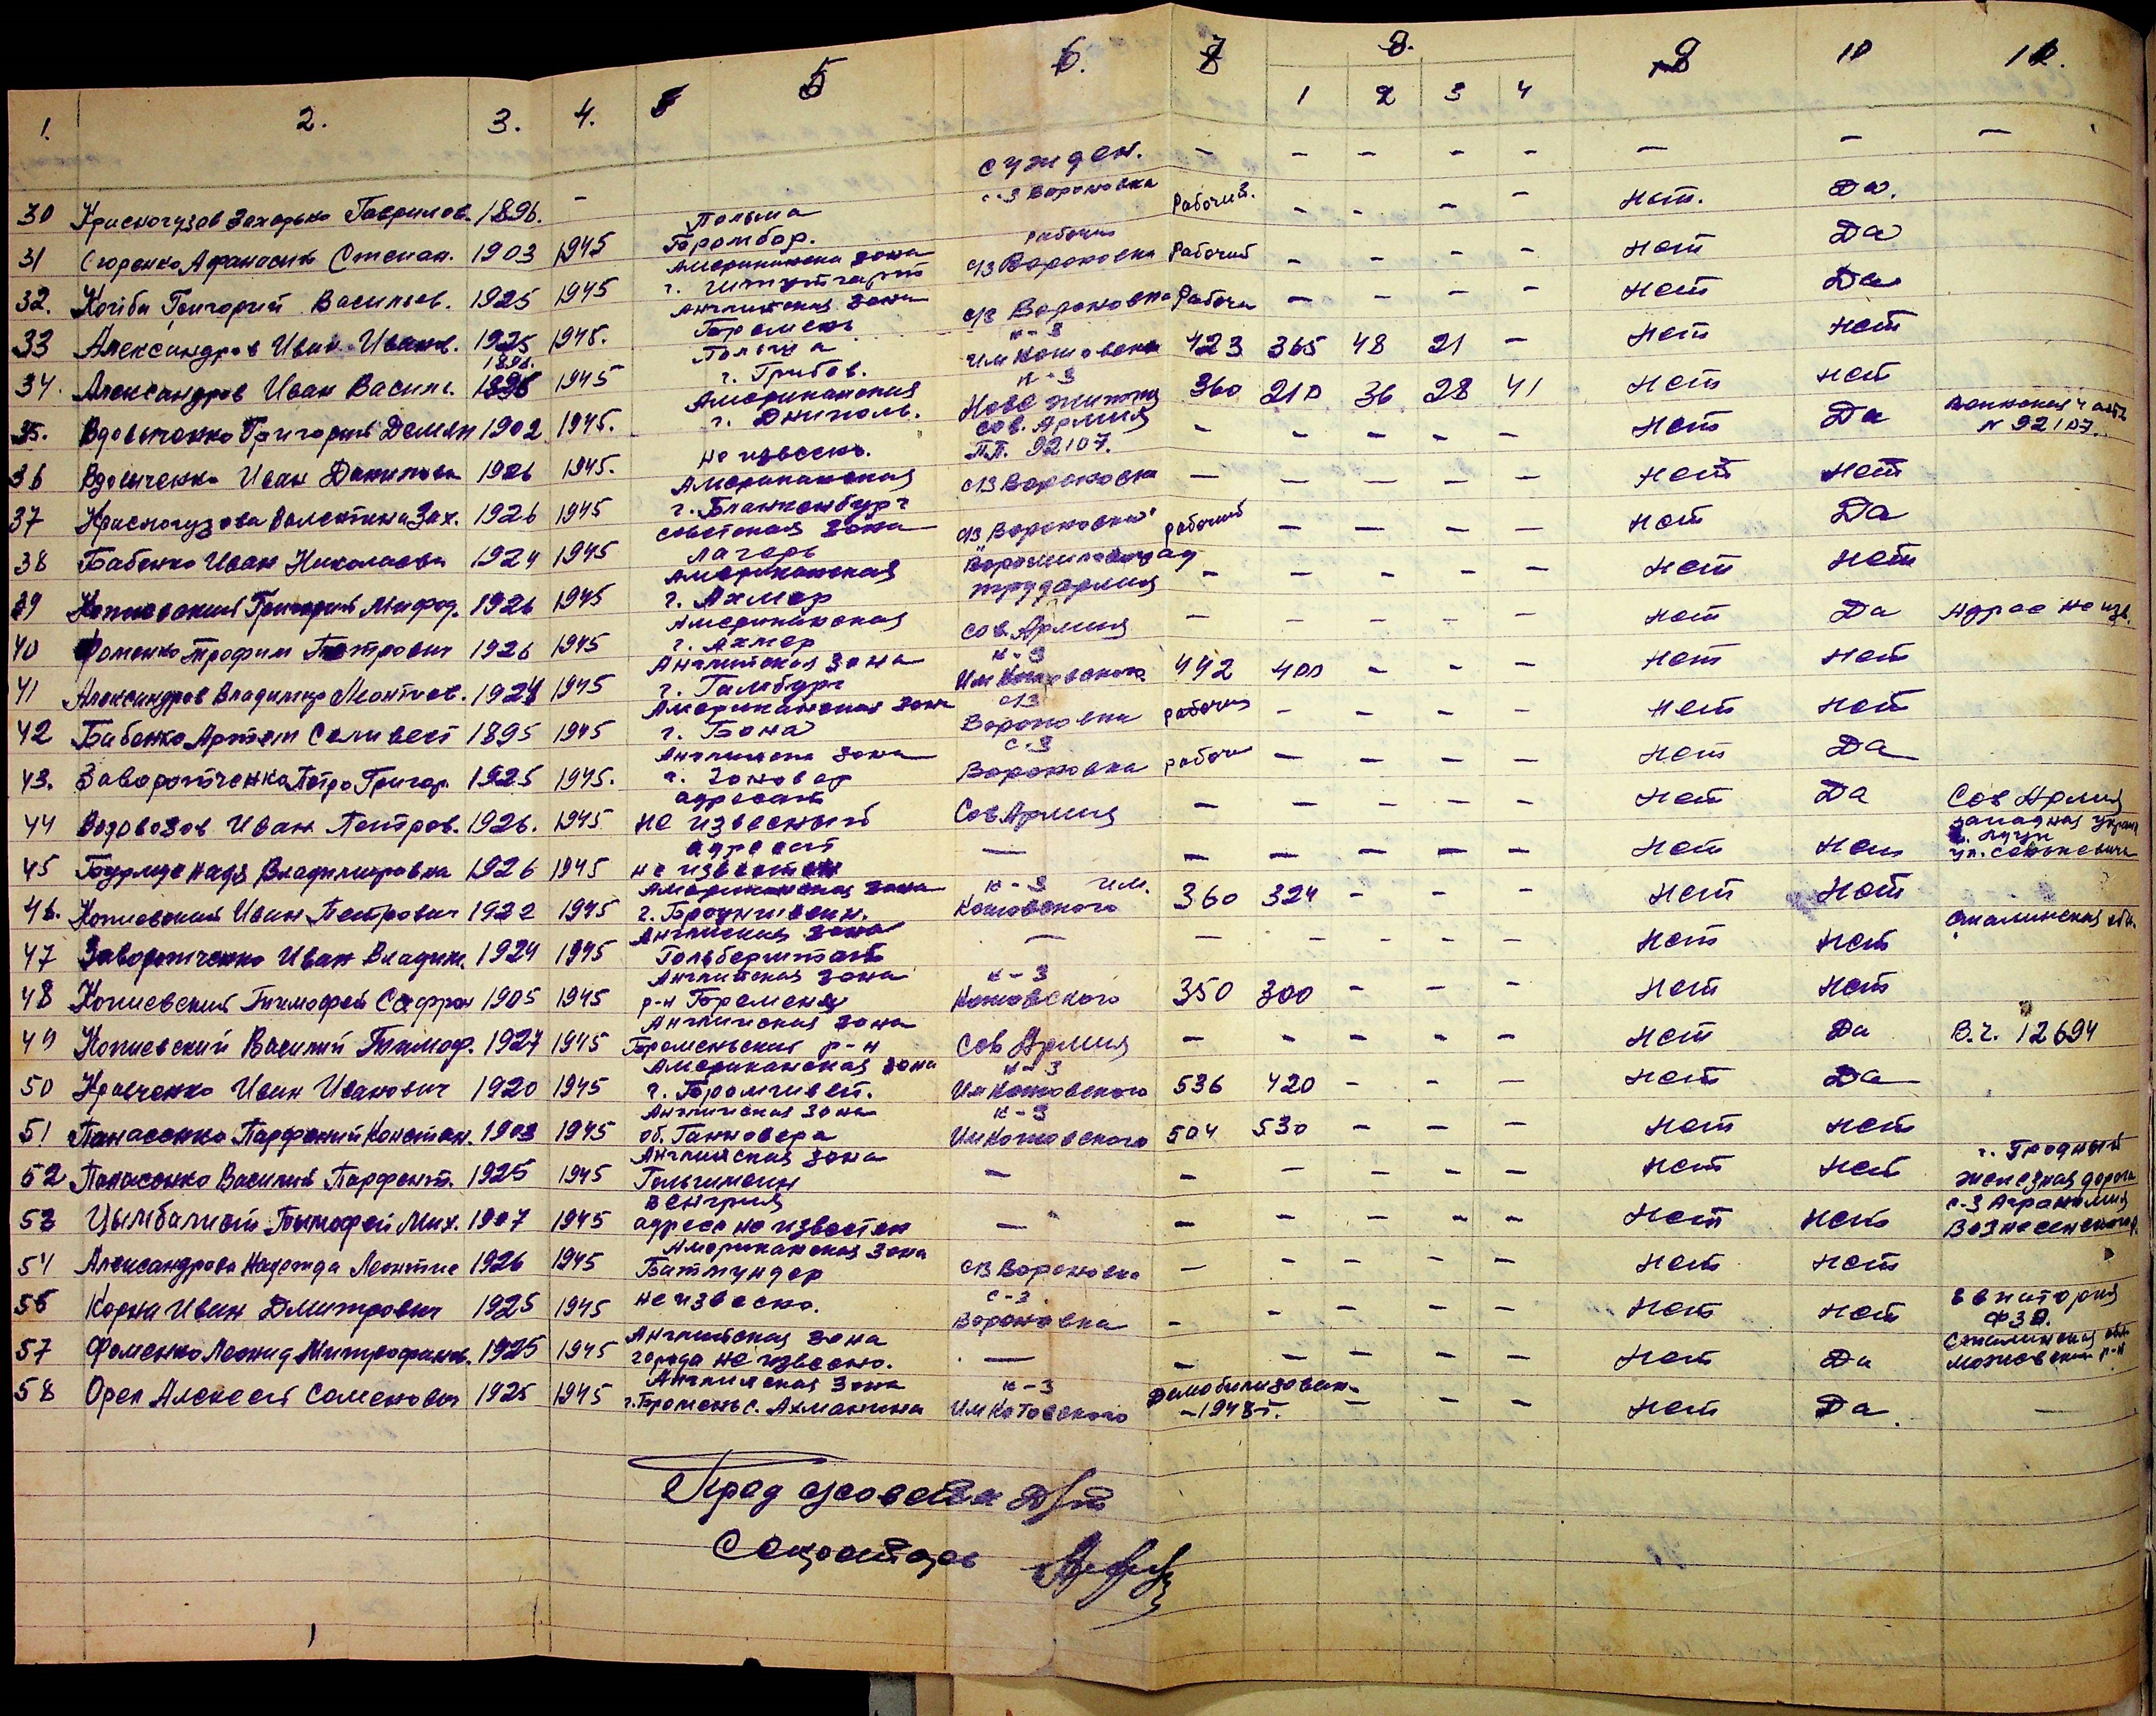 1. 2. 3. 4. 5 6. 7 8. 9 10 11.
1 2 3 4
30 Красногузов Захарько Гаврилов. 1896. - сужден. - - - - - - - -
31 Сюренко Афанасий Степан. 1903 1945 Польша Бромбер. с-з Вороновка Рабочий. - - - - Нет. Да.
32. Коцюба Григорий Васильев. 1925 1945 Американска зона г. Штутгарт рабочий с/з Вороновка Рабочий - - - - Нет Да
33 Александров Иван Иванов. 1925 1945. Английская зона Бремень с/з Вороновка Рабочи - - - - Нет Да
34. Александров Иван Василь. 1896. 1945 Польша г. Грибов. к-з Им Котовского 423 365 48 21 - Нет Нет
35. Вдовыченко Григорий Демян 1902 1945. Американская г. Дниполь. к-з Нове життя 360 210 36 28 41 Нет Нет
36 Вдовыченко Иван Данилови 1926 1945. Не извесно. Сов. Армия П.П. 92107. - - - - - Нет Да Воинская часть N 92107.
37 Красногузова Валентина Зах. 1926 1945 Американская г. Бланкенбург с/з Вороновка - - - - - Нет Нет
38 Бабенко Иван Николаеви 1924 1945 советская зона лагерь с/з Вороновка рабочий - - - - Нет Да
39 Копиевский Григорий Мифод. 1926 1945 Американская г. Ахмер Ворошиловград трудармия - - - - - Нет Нет
40 Фоменко Трофим Петрович 1926 1945 Американская г. Ахмер Сов. Армия - - - - - Нет Да Адрес не изв.
41 Александров Владимир Леонтиев. 1924 1945 Английская зона г. Гамбург к-з Им Котовского 442 400 - - - Нет Нет
42 Бабенко Артем Селивест 1895 1945 Американская зона г. Бона с/з Вороновка рабочий - - - - Нет Нет
43. Заворотченко Петро Григор. 1925 1945. Английска зона г. Зоновер с-з Вороновка рабочи - - - - Нет Да
44 Водовозов Иван Петров. 1926. 1945 адресат не извесный Сов Армия - - - - - Нет Да Сов Армия
45 Бурлида Надя Владимировна 1926 1945 адресат не известен - - - - - - Нет Нет западная Украин г. Луцк ул. Сенкевича
46. Копиевский Иван Петрович 1922 1945 Американская зона г. Броунивеин. к-з им. Котовского 360 324 - - - Нет Нет
47 Заворотченко Иван Владим. 1924 1945 Английская зона Гольберштат - - - - - - Нет Нет Сталинская обл.
48 Копиевский Тимофей Софрон 1905 1945 Английская зона р-н Бремены к-з Котовского 350 300 - - - Нет Нет
49 Копиевский Василий Тимоф. 1927 1945 Английская зона Бременьский р-н Сов Армия - - - - - Нет Да В.ч. 12694
50 Кравченко Иван Иванович 1920 1945 Американская зона г. Бромшвей. к-з Им Котовского 536 420 - - - Нет Да
51 Панасенко Парфений Констан. 1903 1945 Английская зона об. Ганновера к-з Им Котовского 504 530 - - - Нет Нет
52 Панасенко Василий Парфент. 1925 1945 Английская зона Гольгимеин - - - - - - Нет Нет г. Гродный железная дорога
53 Цымбалист Тимофей Мих. 1907 1945 Венгрия адреса не известен - - - - - - Нет Нет с-з Агрономия Вознесенского р.
54 Александрова Надежда Леонтие 1926 1945 Американская зона Битмундер с/з Вороновка - - - - - Нет Нет
56 Корна Иван Дмитрович 1925 1945 не извесно. с-з Вороновка - - - - - Нет Нет Евпатория ФЗО.
57 Фоменко Леонид Митрофанов. 1925 1945 Английская зона города не извесно. - - - - - - Нет Да Сталинская обл р-н
58 Орел Алексей Семенович 1925 1945 Английская зона г. Бремень с. Ахманина к-з Им Котовского Демобилизован. -1948 г. - - - Нет Да. -
Пред с/совета
Секретарь